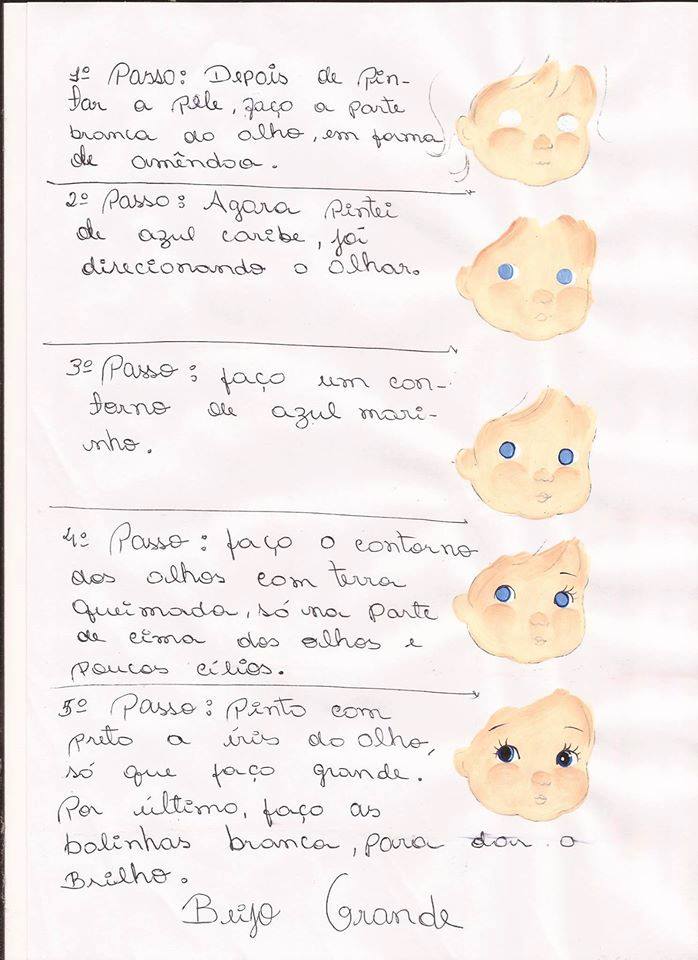 1º Passo: Depois de pin-
tar a pele, faço a parte
branca do olho, em forma
de amêndoa.
2º Passo: Agora pintei
de azul caribe, já
direcionando o olhar.
3º Passo: faço um con-
torno de azul mari-
nho.
4º Passo: faço o contorno
dos olhos com terra
queimada, só na parte
de cima dos olhos e
poucos cílios.
5º Passo: Pinto com
preto a íris do olho,
só que faço grande.
Por último, faço as
bolinhas branca, para dar o
Brilho.
Beijo Grande